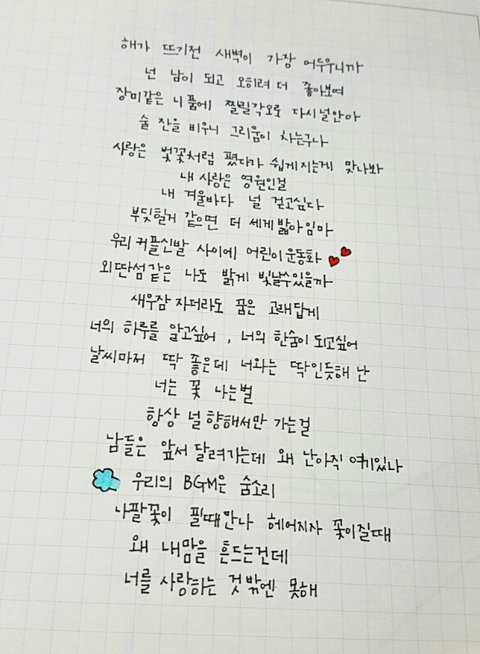 해가 뜨기전 새벽이 가장 어두우니까
넌 남이 되고 오히려 더 좋아보여
장미같은 니 품에 찔릴각오로 다시 널안아
술 잔을 비우니 그리움이 차는구나
사랑은 벚꽃처럼 폈다가 쉽게지는게 맞나봐
내 사랑은 영원인걸
내 겨울바다 널 걷고싶다
부딪힐거 같으면 더 세게밟아임마
우리 커플신발 사이에 어린이 운동화
외딴섬 같은 나도 밝게 빛날수있을까
새우잠 자더라도 꿈은 고래답게
너의 하루를 알고싶어, 너의 한숨이 되고싶어
날씨마저 딱 좋은데 너와는 딱인듯해 난
너는 꽃 나는벌
항상 널 향해서만 가는걸
남들은 앞서 달려가는데 왜 난아직 여기있나
우리의 BGM은 숨소리
나팔꽃이 필때만나 헤어지자 꽃이질때
왜 내맘을 흔드는건데
너를 사랑하는 것밖엔 못해